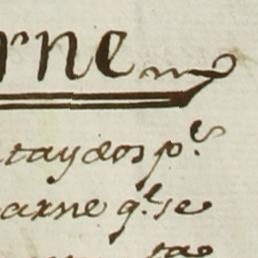 rne
tay dos p.s
arne q.l se